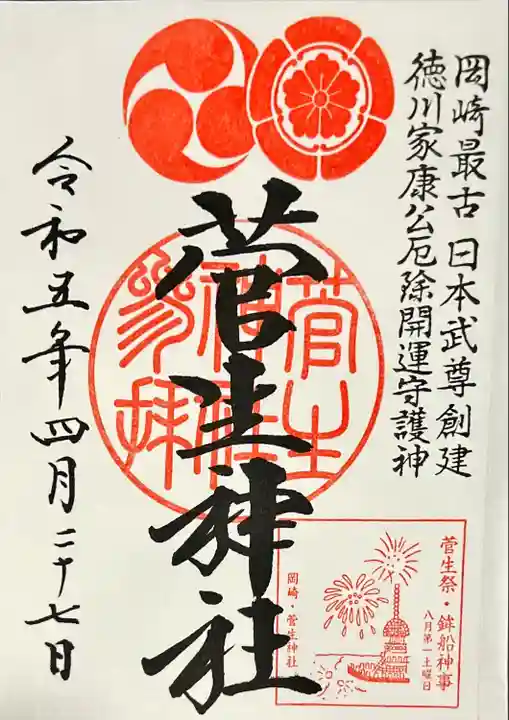 岡崎最古 日本武尊創建
徳川家康公厄除開運守護神
菅生神社
菅生
神社
参拝
令和五年四月二十七日
菅生祭・鉾船神事
八月第一土曜日
岡崎・菅生神社